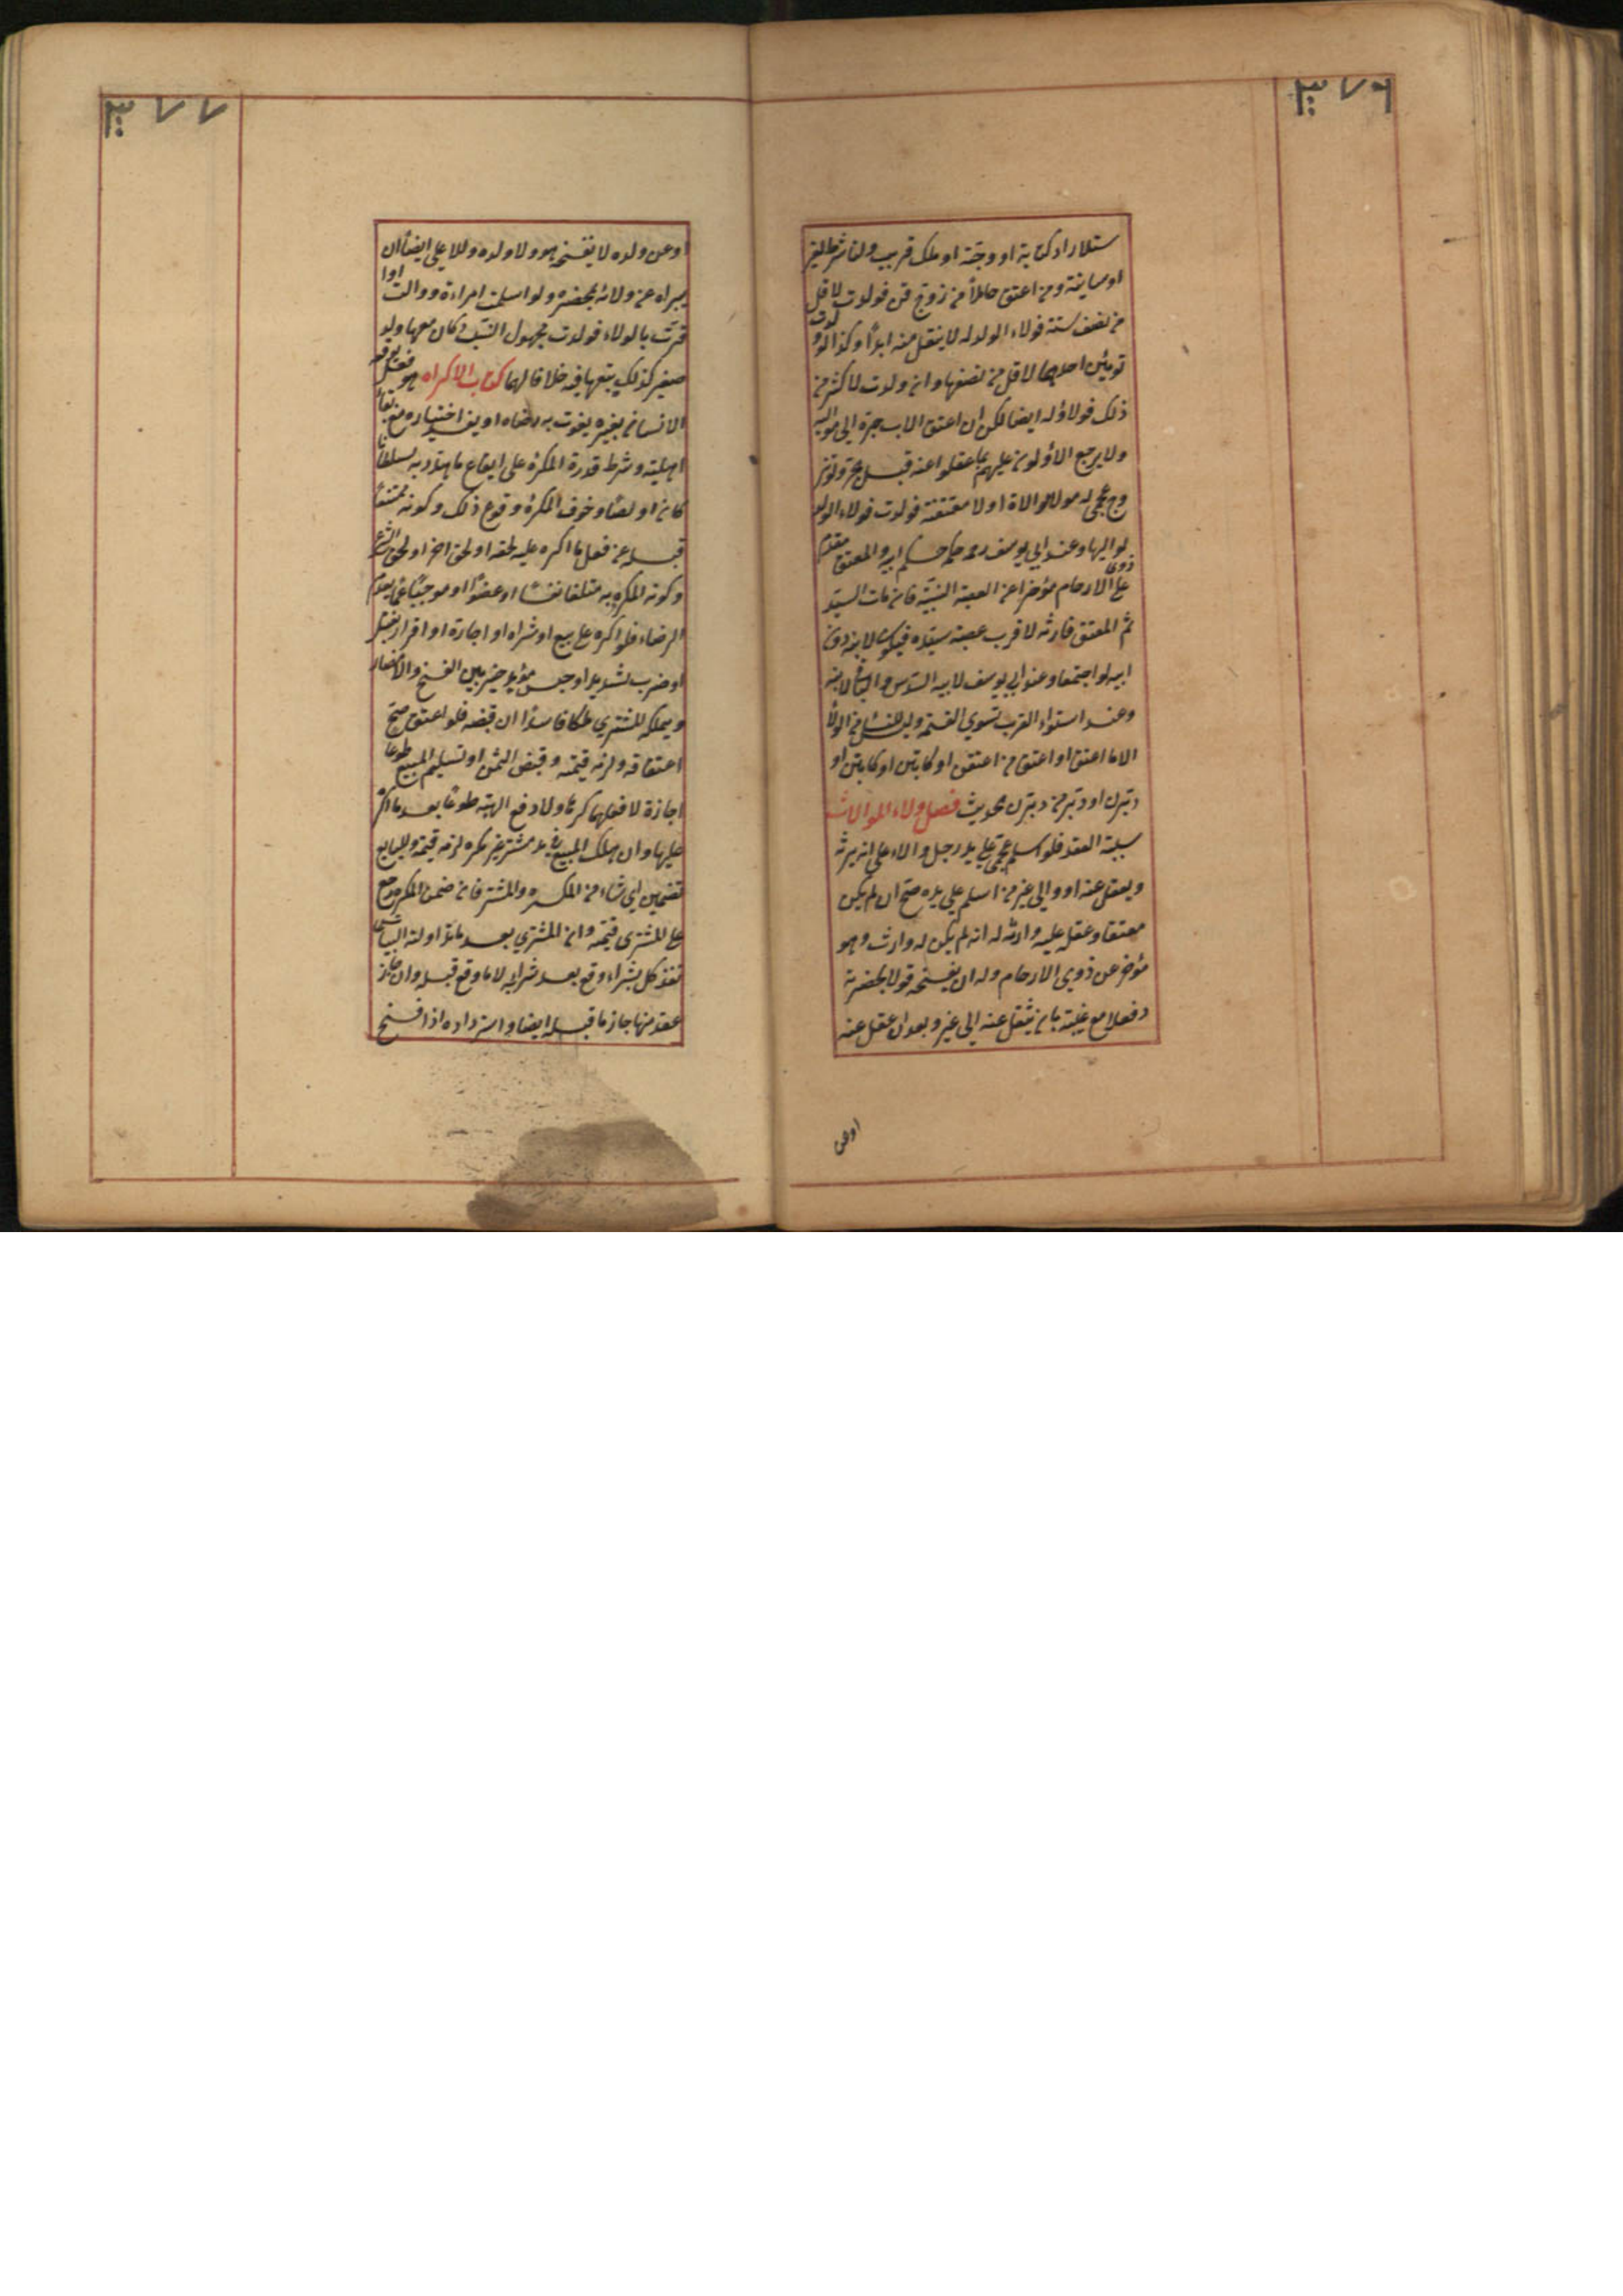 ٣٧٦
ستلاد او كتابة او وصية او ملك قريب ولغا شرط لغير
او سايبة ومن اعتق حاملاً من زوج قن فولدت لاقل
من نصف سنة فولاء الولد له لا ينتقل عنه ابداً وكذا لو ولدت
توئمين احدهما لاقل من نصفها وان ولدت لاكثر من
ذلك فولاؤه له ايضا لكن ان اعتق الاب جره الى مواليه
ولا يرجع الأولون عليهم بما عقلوا عنه قبل جر ولو تز
وج عجمي له مولى الموالاة اولا معتقة فولدت فولاء الولد
لمواليها وعند ابي يوسف رحمه حكمه حكم ابيه والمعتق مقدم
على ذوى الارحام مؤخر عن العصبة النسبية فان مات السيد
ثم المعتق فارثه لاقرب عصبة سيده فيكون لابنه دون
ابيه لو اجتمعا وعند ابي يوسف لابيه السدس والباقي لابنه
وعند استواء القرب تستوي القسمة وليس للنساء من الولاء
الا ما اعتقن او اعتق من اعتقن او كاتبن او كاتب من كاتبن او
دبرن او دبر من دبرن لحديث فصل ولاء الموالات
سببه العقد فلو اسلم عجمي على يد رجل ووالاه على انه يرثه
ويعقل عنه او والى غير من اسلم على يده صح ان لم يكن
معتقا وعقله عليه وارثه له ان لم يكن له وارث وهو
مؤخر عن ذوى الارحام وله ان يفسخه قولا بحضرته
وفعلا مع غيبته بان ينتقل عنه الى غيره وبعد ان عقل عنه
او عن
٣٧٧
او عن ولده لا يفسخه هو ولا ولده وللاعلى ايضاً ان
يبرأه عن ولائه بحضره ولو اسلمت امراءة ووالت اوا
قرت بالولاء فولدت مجهول النسب او كان معها ولد
صغير كذلك يتبعها فيه خلافا لهما كتاب الاكراه هو فعل يوقعه
الانسان بغيره يفوت به رضاه او يفسد اختياره مع بقاء
اهليته وشرط قدرة المكره على ايقاع ما هدد به سلطانا
كان او لصًا وخوف المكره وقوع ذلك وكونه ممتنعًا
قبله عن فعل ما اكره عليه لحقه او لحق آخر او لحق الشرع
وكون المكره به متلفا نفسًا او عضوًا او موجبًا غمًا يعدم
الرضاء فلو اكره على بيع او شراء او اجارة او اقرار بقتل
او ضرب شديد او حبس مؤيد خير بين الفسخ والامضاء
ويملكه المشتري ملكا فاسدًا ان قبضه فلو اعتق صح
اعتقاقه ولزمه قيمته وقبض الثمن او تسليم المبيع طوعا
اجازة لا فعلهما كرهًا ولا دفع الهبة طوعًا بعد ما اكره
عليها وان هلك المبيع في يد مشتر غير مكره لزمه قيمته وللبايع
تضمين اي شاء من المكره والمشتر فان ضمن المكره رجع
على المشترى قيمته وان المشتري بعد ما تداولته البياعات
نفذ كل شراء وقع بعد شرائه لا ما وقع قبله وان جاز
عقد منها جاز ما قبله ايضا واسترداده اذا فسخ